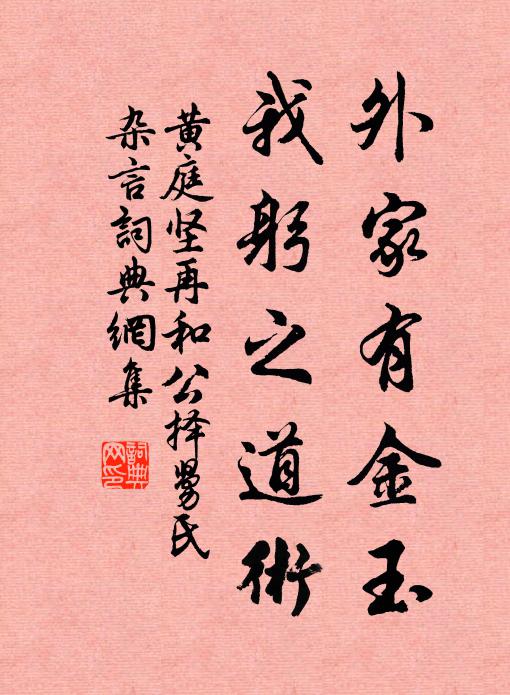 外家有金玉
我躬之道術
黄庭坚再和公择舅氏
杂言詞典網集
詞典
网印